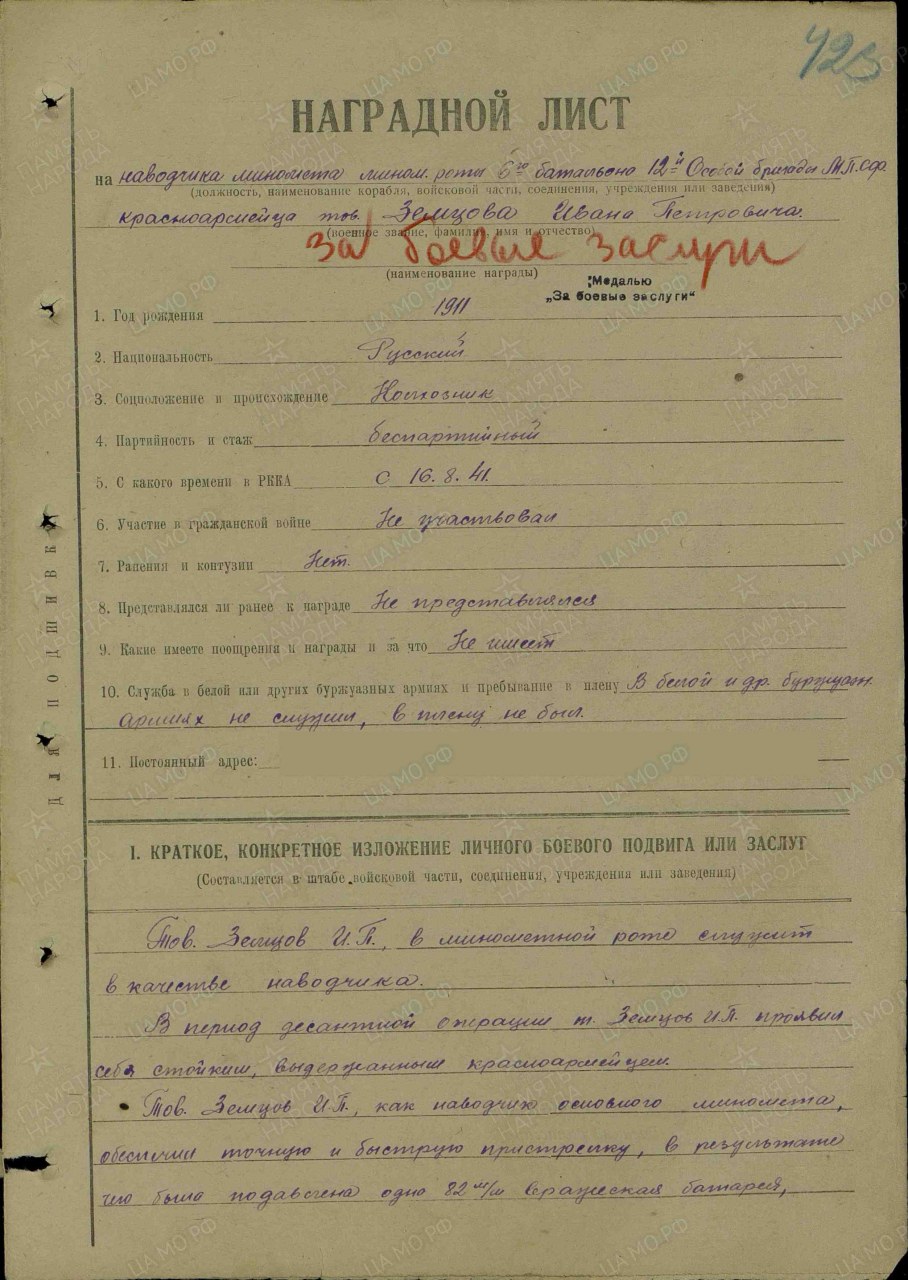 423
НАГРАДНОЙ ЛИСТ
на наводчика миномета мином. роты 6го батальона 12й Особой бригады М.П. СФ.
(должность, наименование корабля, войсковой части, соединения, учреждения или заведения)
красноармейца тов. Земцова Ивана Петровича.
(военное звание, фамилия, имя и отчество)
за боевые заслуги
(наименование награды)
Медалью
„За боевые заслуги“
1. Год рождения 1911
2. Национальность Русский
3. Соцположение и происхождение
4. Партийность и стаж беспартийный
5. С какого времени в РККА С 16.8.41.
6. Участие в гражданской войне Не участвовал
7. Ранения и контузии Нет.
8. Представлялся ли ранее к награде Не представлялся
9. Какие имеете поощрения и награды и за что Не имеет
10. Служба в белой или других буржуазных армиях и пребывание в плену В белой и др. буржуаз.
армиях не служил, в плену не был.
11. Постоянный адрес:
Для подшивки
I. КРАТКОЕ, КОНКРЕТНОЕ ИЗЛОЖЕНИЕ ЛИЧНОГО БОЕВОГО ПОДВИГА ИЛИ ЗАСЛУГ
(Составляется в штабе войсковой части, соединения, учреждения или заведения)
Тов. Земцов И.П., в минометной роте служит
в качестве наводчика.
В период десантной операции т. Земцов И.П. проявил
себя стойким, выдержанным красноармейцем.
Тов. Земцов И.П., как наводчик основного миномета,
обеспечил точную и быструю пристрелку, в результате
чего была подавлена одна 82 м/м вражеская батарея,